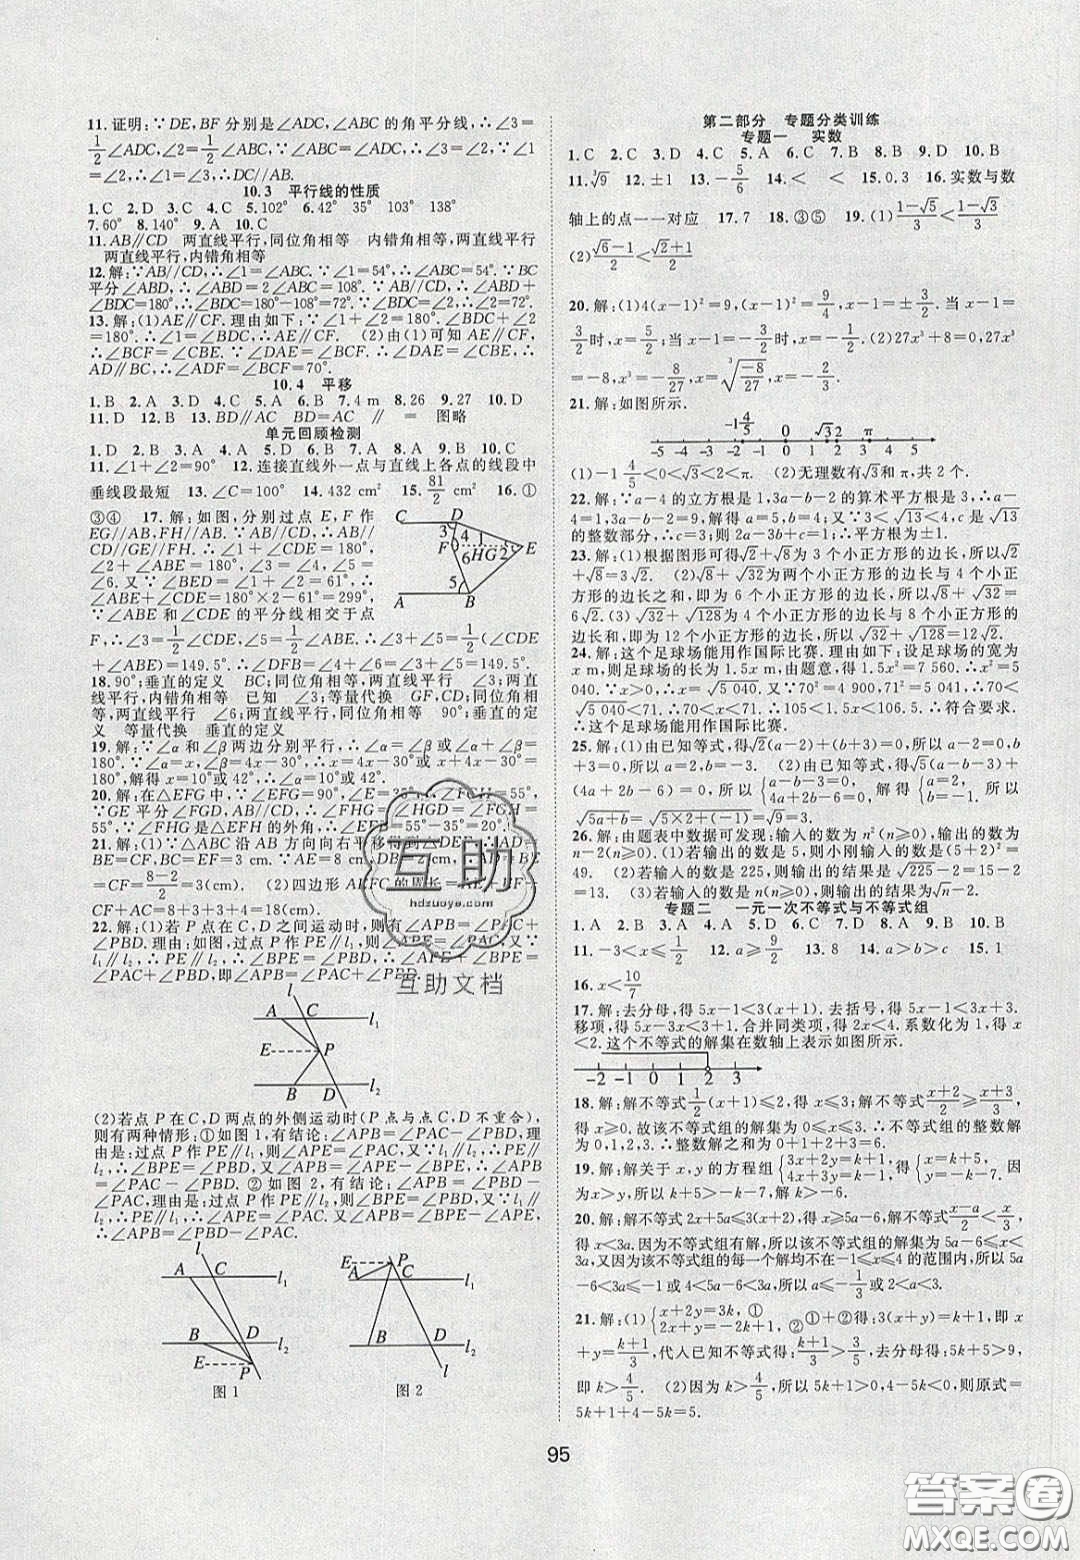 11.证明:∵DE,BF分别是∠ADC,∠ABC的角平分线,∴∠3=
1/2∠ADC,∠2=1/2∠ABC.∵∠ADC=∠ABC,∴∠3=∠2.∵∠1=
∠2,∴∠1=∠3,∴DC//AB.
10.3 平行线的性质
1.C 2.D 3.C 4.C 5.102° 6.42° 35° 103° 138°
7.60° 8.140° 9.A 10.C
11.AB//CD 两直线平行,同位角相等 内错角相等,两直线平行
两直线平行,内错角相等
12.解:∵AB//CD,∴∠1=∠ABC.∵∠1=54°,∴∠ABC=54°.∵BC
平分∠ABD,∴∠ABD=2∠ABC=108°.∵AB//CD,∴∠ABD+
∠BDC=180°,∴∠BDC=180°-108°=72°,∴∠2=∠BDC=72°.
13.解:(1)AE//CF.理由如下:∵∠1+∠2=180°,∠BDC+∠2=
180°,∴∠1=∠BDC,∴AE//CF. (2)由(1)可知AE//CF,
∴∠BCF=∠CBE.∵∠DAE=∠BCF,∴∠DAE=∠CBE,∴AD//
BC,∴∠ADF=∠BCF=70°.
10.4 平移
1.B 2.A 3.C 4.D 5.A 6.B 7.4 m 8.26 9.27 10.D
11.D 12.B 13.BD//AC BD=AC // = 图略
单元回顾检测
1.D 2.A 3.A 4.D 5.D 6.B 7.A 8.A 9.B 10.C
11.∠1+∠2=90° 12.连接直线外一点与直线上各点的线段中
垂线段最短 13.∠C=100° 14.432 cm² 15.81/2 cm² 16.①
③④ 17.解:如图,分别过点E,F作
EG//AB,FH//AB.∵AB//CD,∴
CD//AB//GE//FH.∴∠CDE+∠1=180°,
∠2+∠ABE=180°,∠3=∠4,∠5=
∠6.又∵∠BED=∠1+∠2=61°,
∴∠ABE+∠CDE=180°-61°+180°=299°,
∵∠ABE和∠CDE的平分线相交于点
F,∴∠3=1/2∠CDE,∠5=1/2∠ABE,∴∠3+∠5=1/2(∠CDE
+∠ABE)=149.5°.∴∠DFB=∠4+∠6=∠3+∠5=149.5°.
18.90°;垂直的定义 BC;同位角相等,两直线平行 ∠3;两直
线平行,内错角相等 已知 ∠3;等量代换 GF,CD;同位角相
等,两直线平行 ∠6;两直线平行,同位角相等 90°;垂直的定
义 等量代换 垂直的定义
19.解:∵∠α和∠β两边分别平行,∴∠α=∠β或∠α+∠β=
180°.∵∠α=x,∠β=4x-30°,∴x=4x-30°或x+4x-30°=
180°,解得x=10°或42°,∴∠α=10°或42°.
20.解:在△EFG中,∠EFG=90°,∠E=35°,∴∠FGH=55°.
∵GE平分∠FGD,AB//CD,∴∠FHG=∠HGD=∠FGH=
55°.∵∠FHG是△EFH的外角,∴∠EFB=55°-35°=20°.
21.解:(1)∵△ABC沿AB方向向右平移得到△DEF,∴AD=
BE=CF,BC=EF=3 cm.∵AE=8 cm,DB=2 cm,∴AD=BE
=CF=8-2/2=3(cm). (2)四边形AEFC的周长=AE+EF+
CF+AC=8+3+4+3=18(cm).
22.解:(1)若P点在C,D之间运动时,则有∠APB=∠PAC+
∠PBD.理由是:如图,过点P作PE//l₁,∴∠APE=∠PAC.又∵
l₁//l₂,∴PE//l₂,∴∠BPE=∠PBD,∴∠APE+∠BPE=
∠PAC+∠PBD,即∠APB=∠PAC+∠PBD.
(2)若点P在C,D两点的外侧运动时(P点与点C,D不重合),
则有两种情形:①如图1,有结论:∠APB=∠PAC-∠PBD.理
由是:过点P作PE//l₁,则∠APE=∠PAC.又∵l₁//l₂,∴PE//
l₂,∴∠BPE=∠PBD,∴∠APB=∠APE-∠BPE,即∠APB
=∠PAC-∠PBD.②如图2,有结论:∠APB=∠PBD-
∠PAC,理由是:过点P作PE//l₁,则∠BPE=∠PBD.又∵l₁//
l₂,∴PE//l₁,∴∠APE=∠PAC,∴∠APB=∠BPE-∠APE,
即∠APB=∠PBD-∠PAC.
图1
图2
第二部分 专题分类训练
专题一 实数
1.C 2.C 3.D 4.C 5.A 6.D 7.B 8.B 9.D 10.B
11.∛9 12.±1 13.-5/6 14.< < < 15.0.3 16.实数与数
轴上的点一一对应 17.7 18.③⑤ 19.(1)1-√5/3<1-√3/3
(2)√6-1/2<√2+1/2
20.解:(1)4(x-1)²=9,(x-1)²=9/4,x-1=±3/2.当x-1=
3/2时,x=5/2;当x-1=-3/2时,x=-1/2. (2)27x³+8=0,27x³
=-8,x³=-8/27,x=∛-8/27=-2/3.
21.解:如图所示.
-1 4/5 √3 π
-5 -4 -3 -2 -1 0 1 2 3 4 5
(1)-1 4/5<0<√3<2<π. (2)无理数有√3和π,共2个.
22.解:∵a-4的立方根是1,3a-b-2的算术平方根是3,∴a-
4=1,3a-b-2=9,解得a=5,b=4;∵3<√13<4,c是√13
的整数部分,∴c=3;则2a-3b+c=1;∴平方根为±1.
23.解:(1)根据图形可得√2+√8为3个小正方形的边长,所以
√2+√8=3√2. (2)√8+√32为两个小正方形的边长与4个小正
方形的边长和,即为6个小正方形的边长,所以√8+√32=
6√2. (3)√32+√128为4个小正方形的边长与8个小正方形的
边长和,即为12个小正方形的边长,所以√32+√128=12√2.
24.解:这个足球场能用作国际比赛.理由如下:设足球场的宽为
x m,则足球场的长为1.5x m,由题意,得1.5x²=7 560.∴x²=5
040.∵x>0,∴x=√5 040.又∵70²=4 900,71²=5 041,∴70<
√5 040<71.∴70<x<71.∴105<1.5x<106.5.∴符合要求.
∴这个足球场能用作国际比赛.
25.解:(1)由已知等式,得√2(a-2)+(b+3)=0,所以a=2,b
+3=0,所以a=2,b=-3. (2)由已知等式,得(2a+b-5)√2+
(4a+2b-6)=0,所以{2a+b-5=0, 4a+2b-6=0,所以{a=2, b=-1.所以
√5a+4b=√5×2+4×(-1)=√6.
26.解:由题表中数据可发现:输入的数为n²(n≥0),输出的数为
n-2(n≥0). (1)若输出的数是5,则小刚输入的数是(5+2)²=
49. (2)若输入的数是225,则输出的结果为√225-2=15-2
=13. (3)若输入的数是n(n≥0),则输出的结果为√n-2.
专题二 一元一次不等式与不等式组
1.A 2.B 3.C 4.B 5.A 6.C 7.D 8.A 9.B 10.B
11.-3<x≤1/2 12.a≥9/2 13.8 14.a>b>c 15.1
16.x<10/7
17.解:去分母,得5x-1<3(x+1).去括号,得5x-1<3x+3.
移项,得5x-3x<3+1.合并同类项,得2x<4.系数化为1,得x
<2.这个不等式的解集在数轴上表示如图所示.
-2 -1 0 1 2 3
18.解:解不等式1/2(x+1)≤2,得x≤3;解不等式x+2/2≥x+3/3,
得x≥0.故该不等式组的解集为0≤x≤3.∴不等式组的整数解
为0,1,2,3.∴整数解之和为0+1+2+3=6.
19.解:解关于x,y的方程组{3x+2y=k, 4x+3y=k+1,得{x=k-2, y=-k+3,因
为x>y,所以k-2>-k+3,解得k>5/2.
20.解:解不等式2x+5a≤3(x+2),得x≥5a-6,解不等式x-a/2<x/3,
得x<3a.因为不等式组有解,所以该不等式组的解集为5a-6≤x
<3a,又因为该不等式组的解不在-1≤x≤4的范围内,所以5a
-6<3a≤-1或4<5a-6<3a.所以a≤-1/3或2<a<3.
21.解:(1){x+2y=3k,① 2x+y=-2k+1,②①+②得:3(x+y)=k+1,即x
+y=k+1/3,代入已知不等式得:k+1/3>3/5,去分母得:5k+5>9,
即k>4/5. (2)因为k>4/5,所以5k+1>0,4-5k<0,则原式=
5k+1+4-5k=5.
95
互助
hdzuoye.com
互助文档
答案圈
MXQE.COM